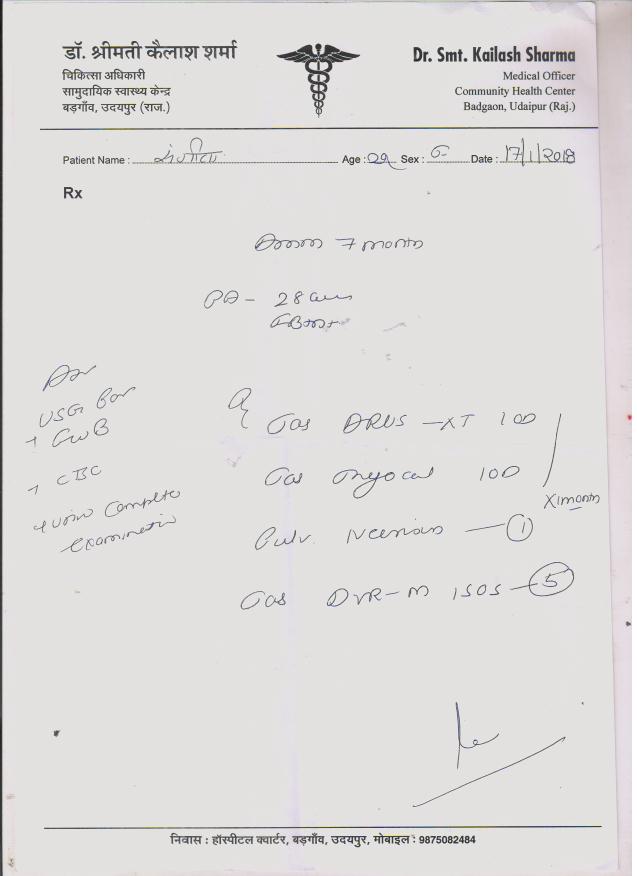 डॉ. श्रीमती कैलाश शर्मा
चिकित्सा अधिकारी
सामुदायिक स्वास्थ्य केन्द्र
बड़गाँव, उदयपुर (राज.)
Dr. Smt. Kailash Sharma
Medical Officer
Community Health Center
Badgaon, Udaipur (Raj.)
Patient Name : Age : 29 Sex : Date : 17/1/2018
Rx
7 month
PA - 28
Adv
USG for
GWB
CBC
Urine Complete
Examination
Tab - XT 1 OD
Tab 1 OD
X1 month
Pulv. — 1
Tab - M 1 SOS — 5
निवास : हॉस्पीटल क्वार्टर, बड़गाँव, उदयपुर, मोबाइल : 9875082484